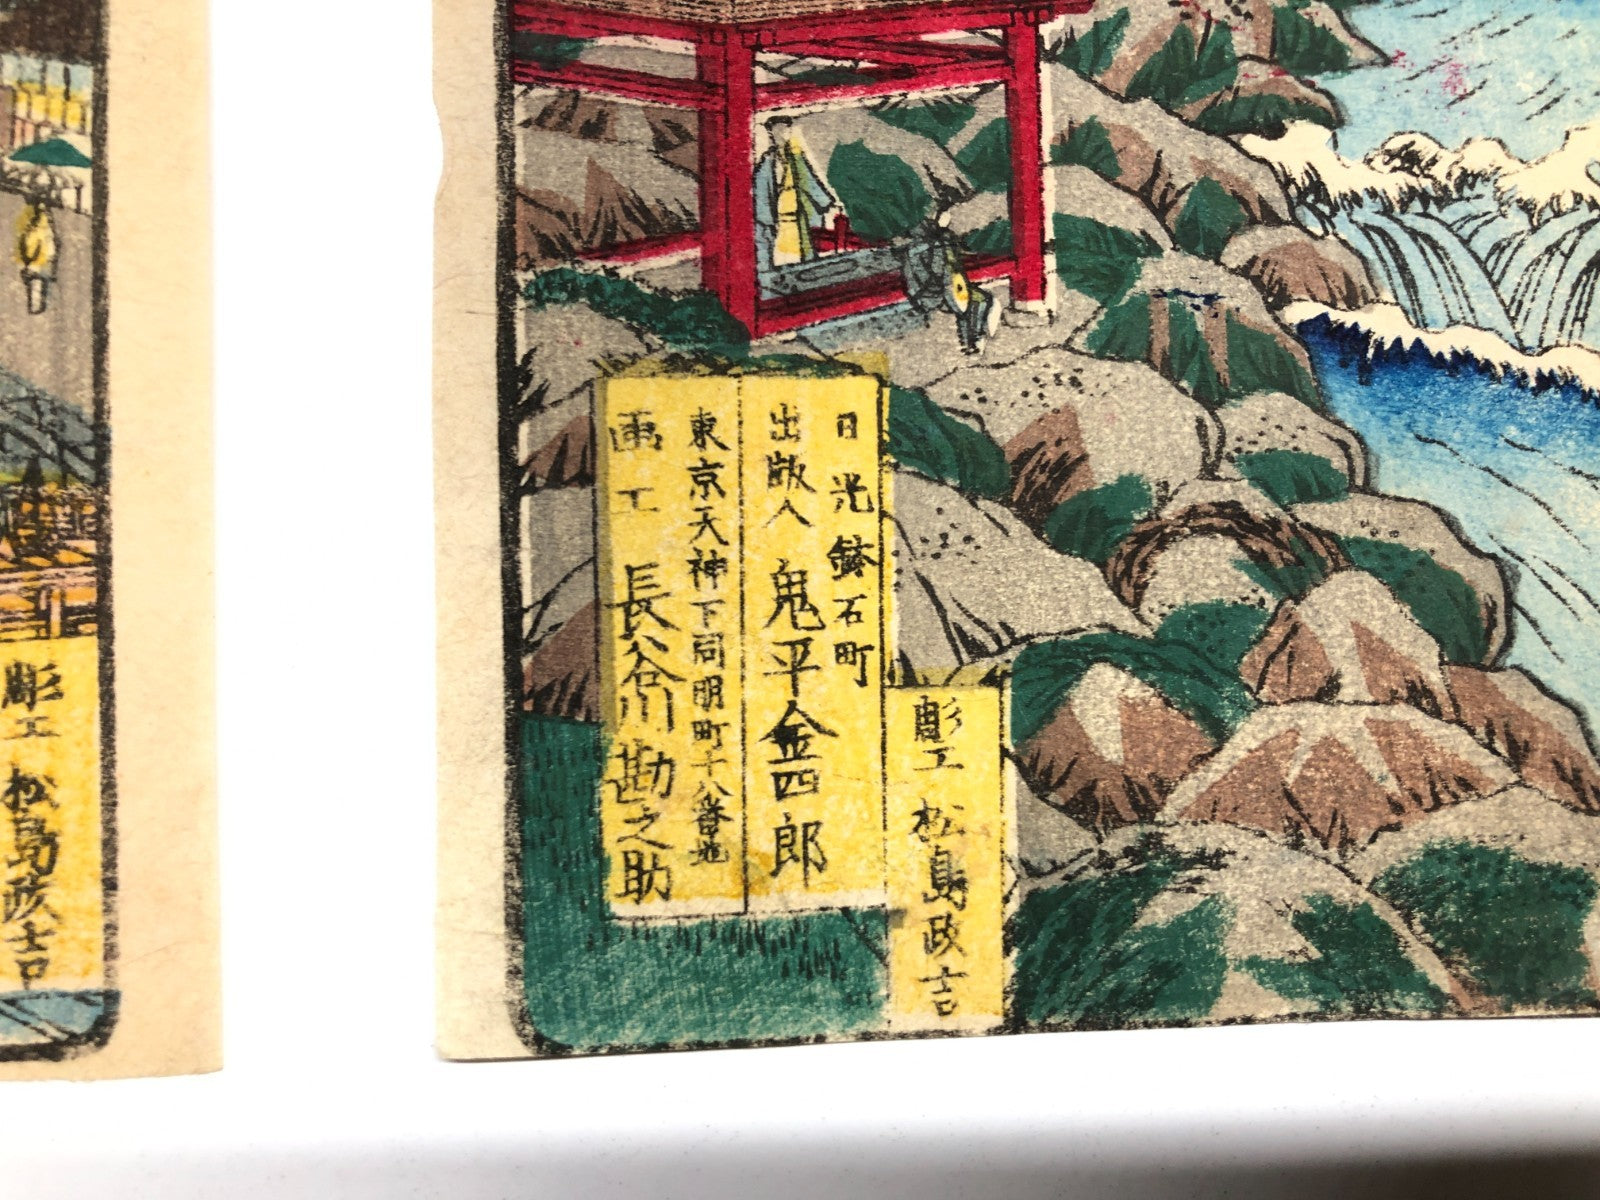 日光鉢石町
出版人 鬼平金四郎
東京天神下同朋町十八番地
画工 長谷川勘之助
彫工 松島政吉
彫工 松島政吉